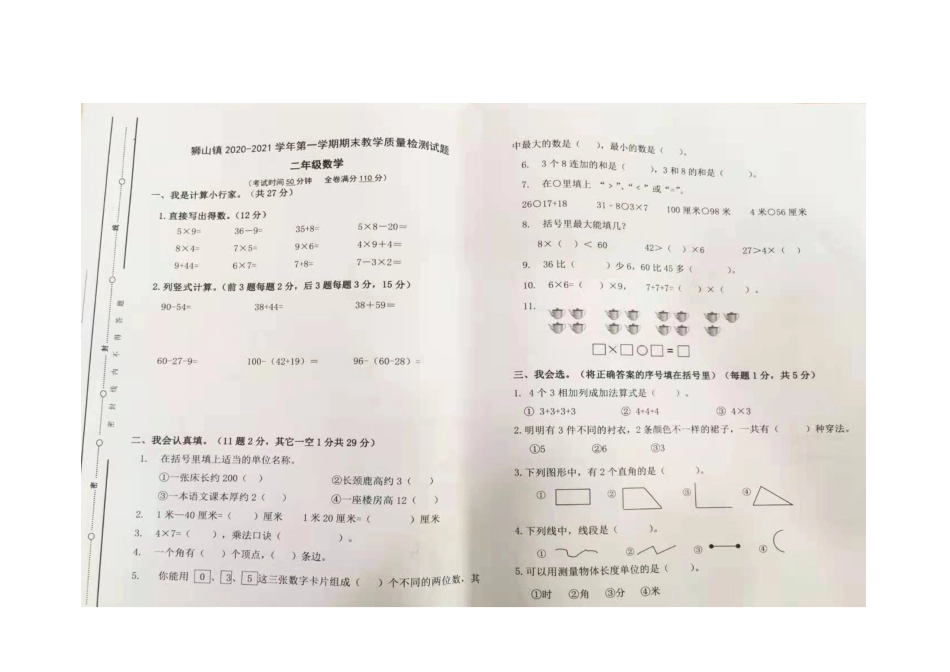 狮山镇 2020-2021 学年第一学期期末教学质量检测试题
二年级数学
（考试时间 50 分钟 全卷满分 110 分）
一、我是计算小行家。（共 27 分）
1. 直接写出得数。（12 分）
5×9= 36－9= 35+8= 5×8－20=
8×4= 7×5= 9×6= 4×9＋4=
9+44= 6×7= 7+8= 7－3×2=
2. 列竖式计算。（前 3 题每题 2 分，后 3 题每题 3 分，15 分）
90-54= 38+44= 38＋59=
60-27-9= 100-（42+19）= 96-（60-28）=
二、我会认真填。（11 题 2 分，其它一空 1 分共 29 分）
1. 在括号里填上适当的单位名称。
①一张床长约 200（ ） ②长颈鹿高约 3（ ）
③一本语文课本厚约 2（ ） ④一座楼房高 12（ ）
2. 1 米—40 厘米=（ ）厘米 1 米 20 厘米=（ ）厘米
3. 4×7=（ ），乘法口诀（ ）。
4. 一个角有（ ）个顶点，（ ）条边。
5. 你能用 0、3、5 这三张数字卡片组成（ ）个不同的两位数，其
中最大的数是（ ），最小的数是（ ）。
6. 3 个 8 连加的和是（ ），3 和 8 的和是（ ）。
7. 在○里填上 “＞”、“＜” 或 “=”。
26○17+18 31﹣8○3×7 100 厘米○98 米 4 米○56 厘米
8. 括号里最大能填几？
8×（ ）＜ 60 42＞（ ）×6 27＞4×（ ）
9. 36 比（ ）少 6，60 比 45 多（ ）。
10. 6×6=（ ）×9， 7+7+7=（ ）×（ ）。
11.
□×□○□=□
三、我会选。（将正确答案的序号填在括号里）（每题 1 分，共 5 分）
1. 4 个 3 相加列成加法算式是（ ）。
① 3+3+3+3 ② 4+4+4 ③ 4×3
2. 明明有 3 件不同的衬衣，2 条颜色不一样的裙子，一共有（ ）种穿法。
①5 ②6 ③3
3. 下列图形中，有 2 个直角的是（ ）。
① ② ③ ④
4. 下列线中，线段是（ ）。
① ② ③ ④
5. 可以用测量物体长度单位的是（ ）。
①时 ②角 ③分 ④米
密 封 线
密 封 线 内 不 得 答 题